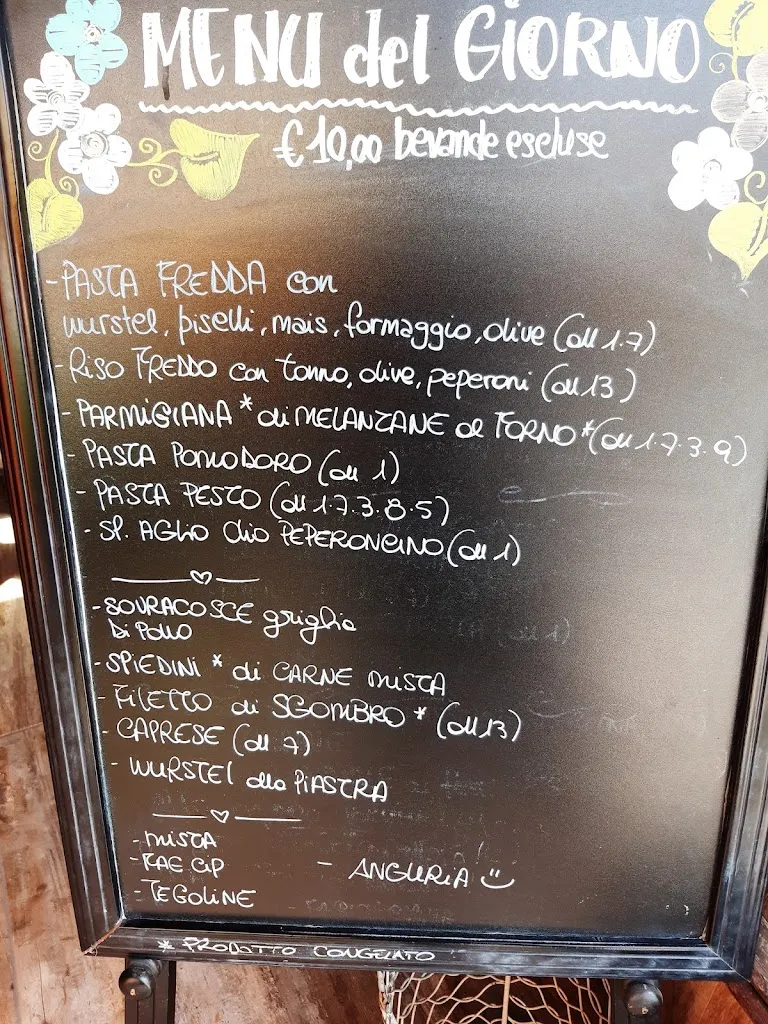 MENU del GIORNO
€ 10,00 bevande escluse
- PASTA FREDDA con
wurstel, piselli, mais, formaggio, olive (all 1.7)
- RISO FREDDO con tonno, olive, peperoni (all 13)
- PARMIGIANA * di MELANZANE al FORNO * (all 1.7.3.9)
- PASTA POMODORO (all 1)
- PASTA PESTO (all 1.7.3.8.5)
- SP. AGLIO Olio PEPERONCINO (all 1)
- SOVRACOSCE griglia
Di POLLO
- SPIEDINI * di CARNE MISTA
- FILETTO di SGOMBRO * (all 13)
- CAPRESE (all 7)
- WURSTEL alla PIASTRA
- MISTA
- PAE CIP - ANGURIA
- TEGOLINE
* PRODOTTO CONGELATO